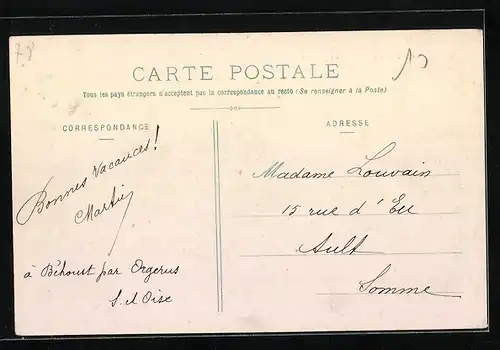 78
CARTE POSTALE
Tous les pays étrangers n'acceptent pas la correspondance au recto (Se renseigner à la Poste)
CORRESPONDANCE
Bonnes Vacances!
Martin
à Béhoust par Orgerus
S. et Oise
ADRESSE
Madame Louvain
15 rue d'Eu
Ault
Somme